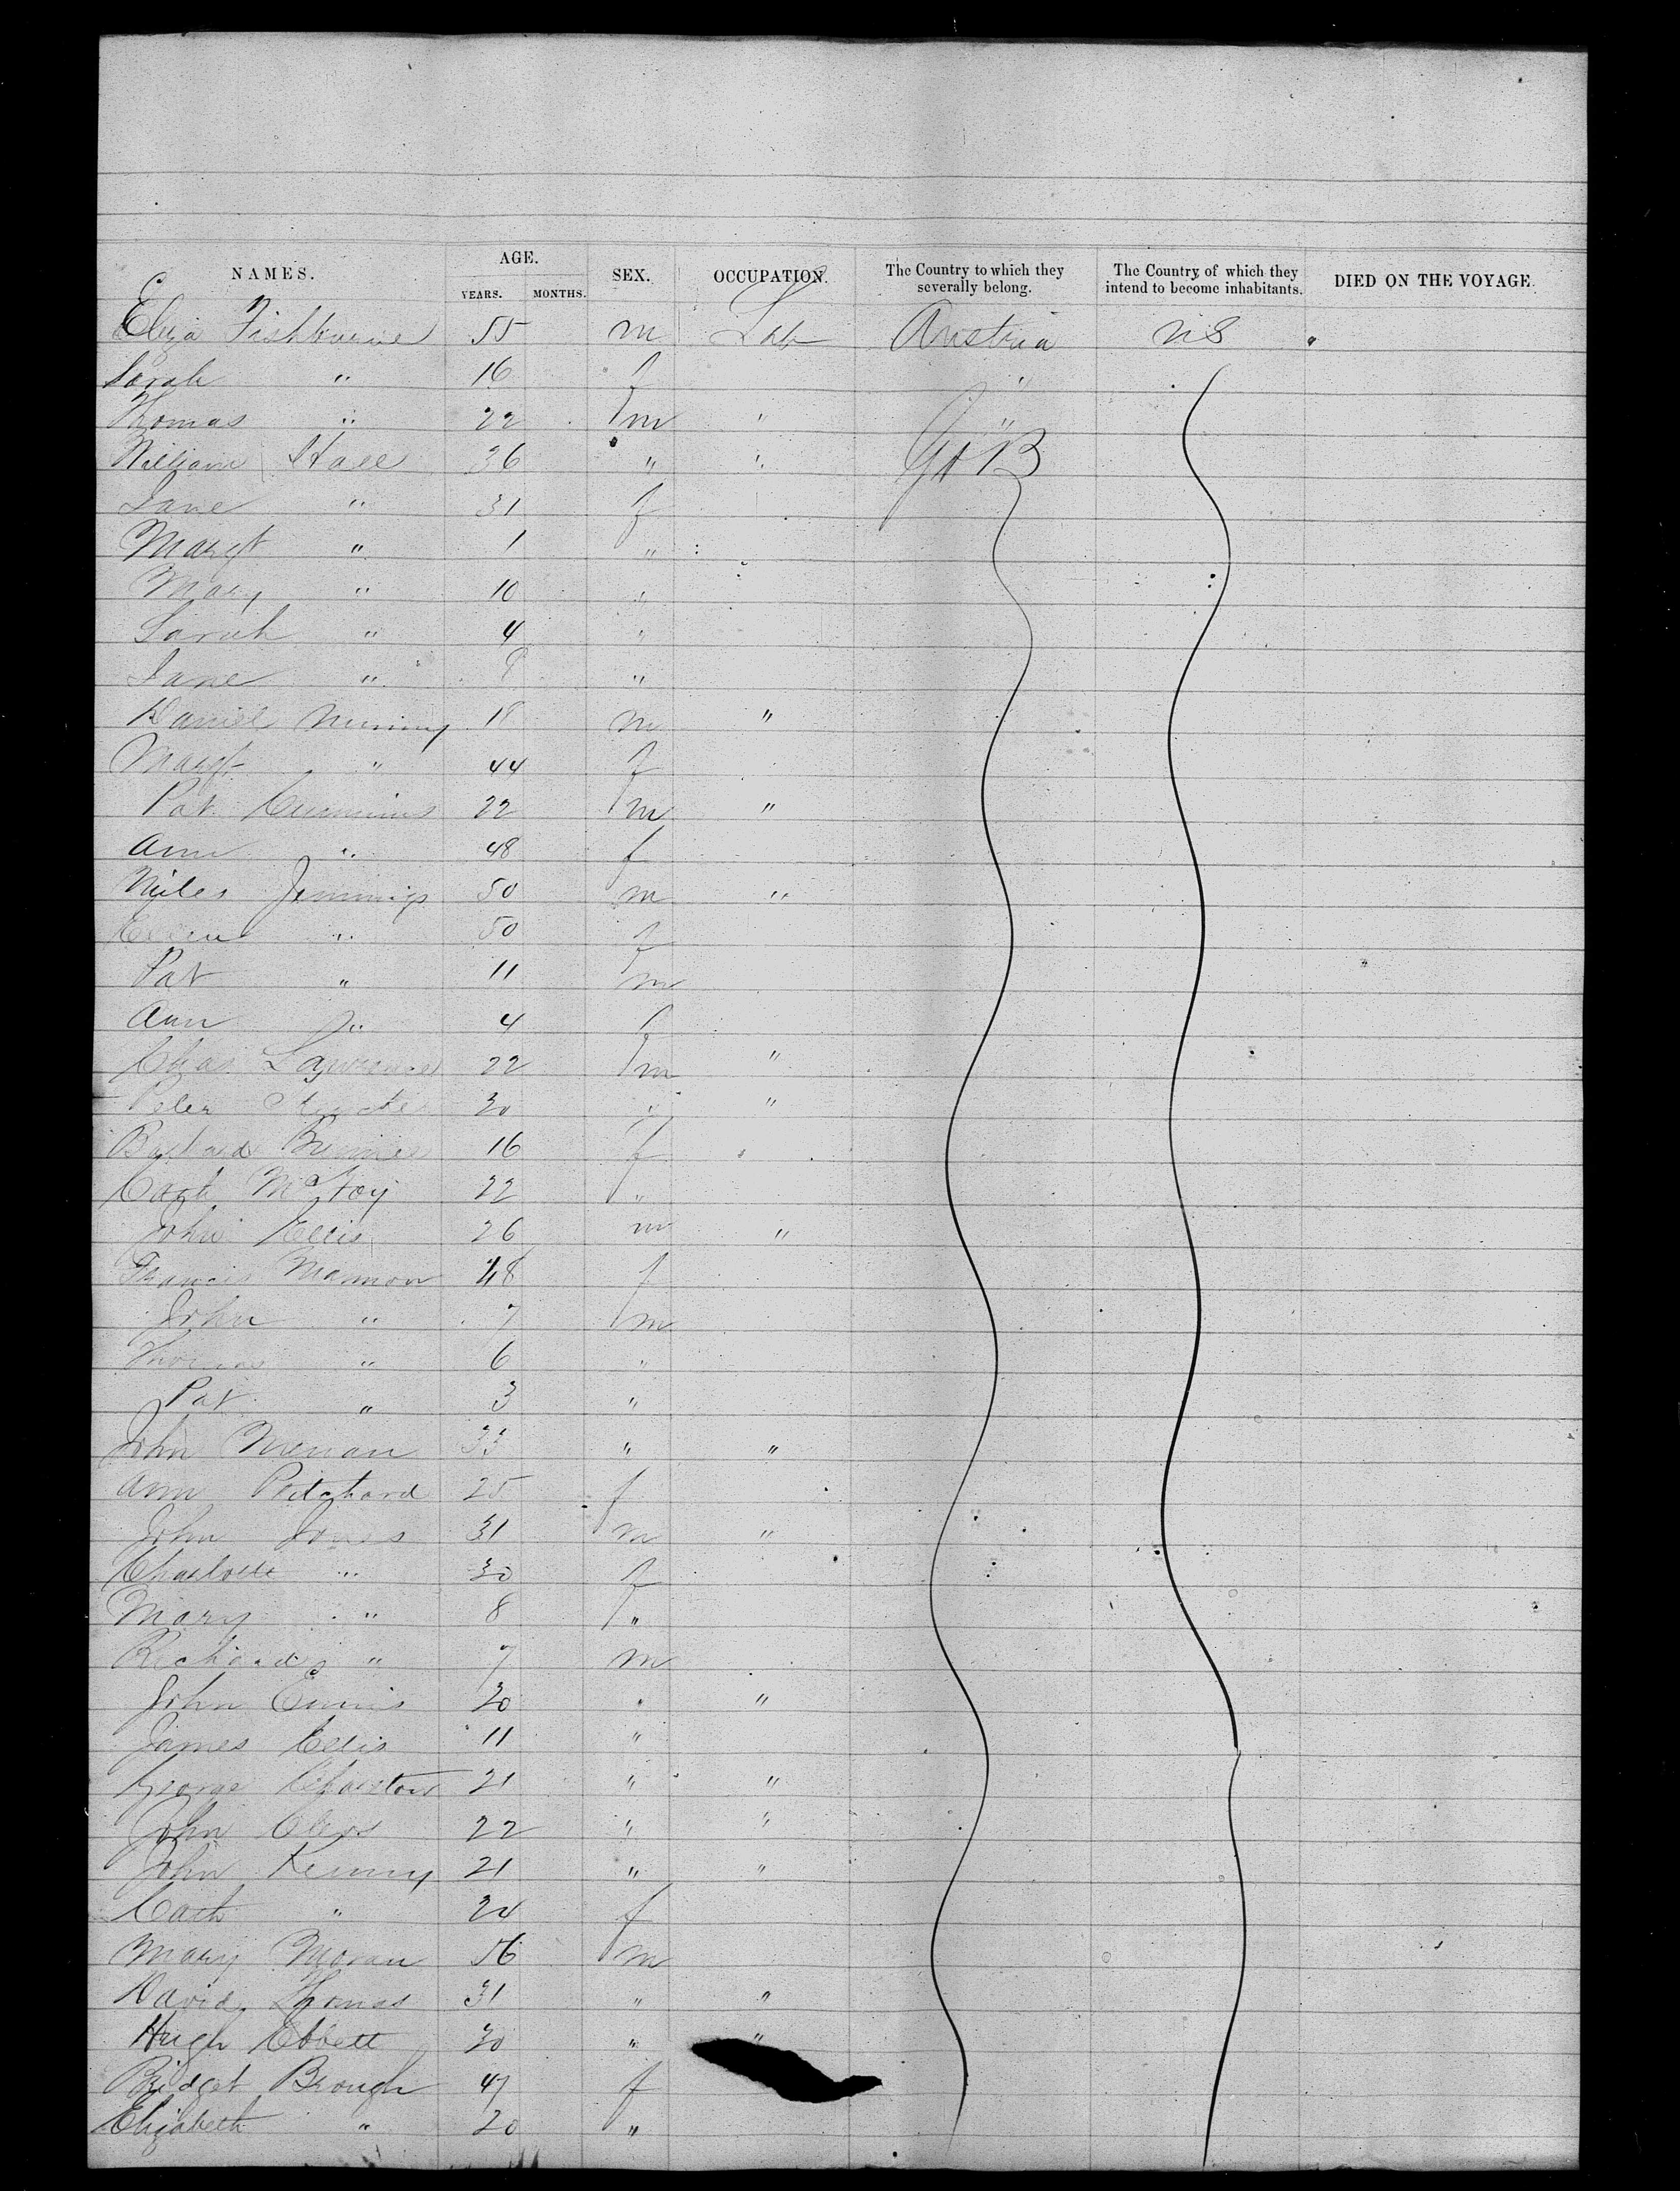 NAMES. AGE. YEARS. MONTHS. SEX. OCCUPATION. The Country to which they severally belong. The Country of which they intend to become inhabitants. DIED ON THE VOYAGE.
Eliza Fishbourne 55 m Lab Austria US
Sarah " 16 f "
Thomas " 22 m " "
William Hall 36 " " Gt B
Jane " 31 f
Margt " 1 "
Mary " 10 "
Sarah " 4 "
Jane " 8 "
Daniel 18 m "
Margt " 44 f
Pat Cummins 22 m "
Ann " 48 f
Miles Jennings 50 m "
Ellen " 50 f
Pat " 11 m
Ann " 4 f
Chas Lawrence 22 m "
Peter 30 " "
16 f
Cath McStoy 22 "
John Ellis 26 m "
Francis Mannon 48 f
John " 7 m
Thomas " 6 "
Pat " 3 "
John 33 " "
Ann Pritchard 25 f
John Jones 31 m "
Charlotte " 30 f
Mary " 8 "
Richard " 7 m
John 30 " "
James Ellis 11 "
George 21 " "
John 22 " "
John Kenny 21 " "
Cath " 24 f
Mary Moran 56 m
David Thomas 31 " "
Hugh Ebbett 30 " "
Bridget Brough 47 f
Elizabeth " 20 "